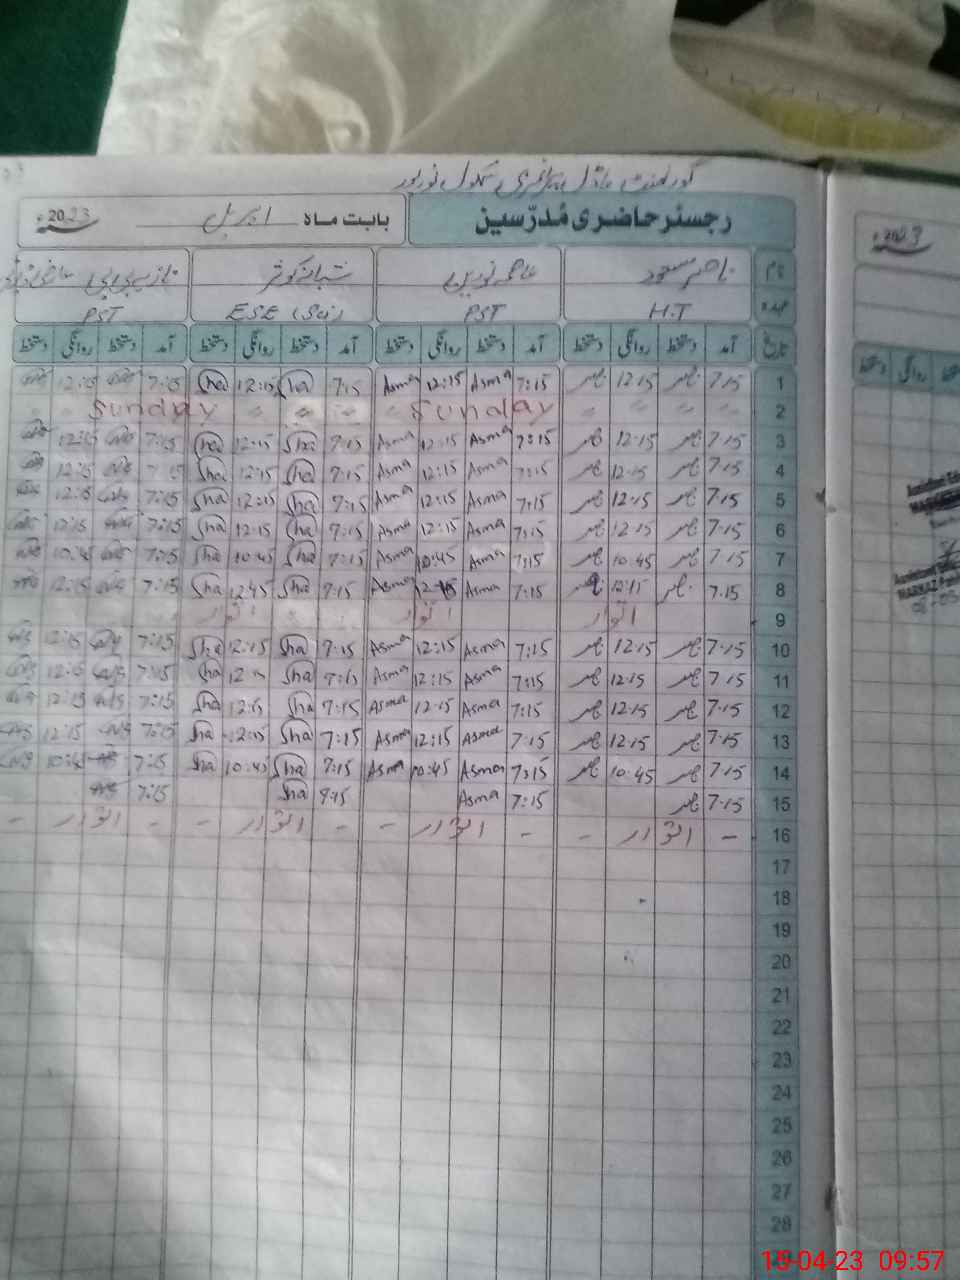 گورنمنٹ ماڈل پرائمری سکول نورپور
رجسٹر حاضری مُدرّسین بابت ماہ اپریل 2023ء
نام ناصر مسعود عاصمہ نورین شبانہ کوثر نازیہ بی بی
عہدہ H.T PST ESE (Sci) PST
تاریخ آمد دستخط روانگی دستخط آمد دستخط روانگی دستخط آمد دستخط روانگی دستخط آمد دستخط روانگی دستخط
1 7.15 12.15 7:15 Asma 12:15 Asma 7:15 Sha 12:15 Sha 7:15 12:15
2 Sunday Sunday
3 7.15 12.15 7:15 Asma 12:15 Asma 7:15 Sha 12:15 Sha 7:15 12:15
4 7.15 12.15 7:15 Asma 12:15 Asma 7:15 Sha 12:15 Sha 7:15 12:15
5 7.15 12.15 7:15 Asma 12:15 Asma 7:15 Sha 12:15 Sha 7:15 12:15
6 7.15 12.15 7:15 Asma 12:15 Asma 7:15 Sha 12:15 Sha 7:15 12:15
7 7.15 10.45 7:15 Asma 10:45 Asma 7:15 Sha 10:45 Sha 7:15 10:45
8 7.15 12.15 7:15 Asma Asma 7:15 Sha 12:45 Sha 7:15 12:15
9 اتوار اتوار اتوار
10 7.15 12.15 7:15 Asma 12:15 Asma 7:15 Sha 12:15 Sha 7:15 12:15
11 7.15 12.15 7:15 Asma 12:15 Asma 7:15 Sha Sha 7:15 12:15
12 7.15 12.15 7:15 Asma 12:15 Asma 7:15 Sha 12:15 Sha 7:15 12:15
13 7.15 12.15 7:15 Asma 12:15 Asma 7:15 Sha 12:15 Sha 7:15 12:15
14 7.15 10.45 7:15 Asma 10:45 Asma 7:15 Sha 10:45 Sha 7:15 10:45
15 7.15 7:15 Asma 7:15 Sha 7:15
16 - اتوار - - اتوار - - اتوار - - اتوار -
17
18
19
20
21
22
23
24
25
26
27
28
2023ء
دستخط روانگی
15-04-23 09:57